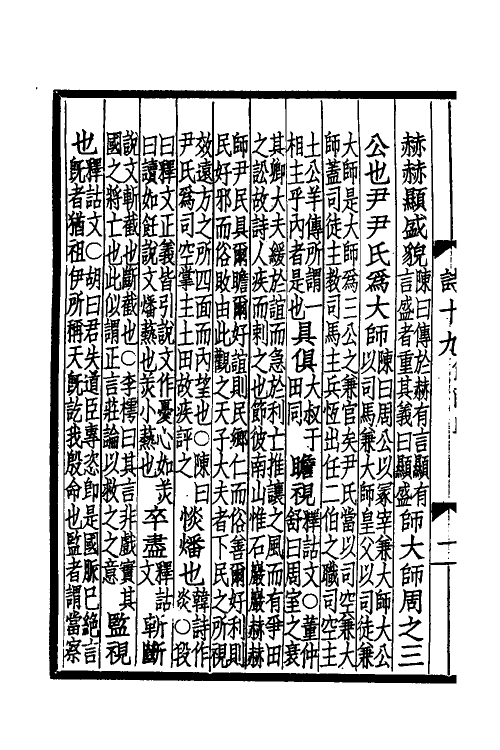 赫赫顯盛貌陳曰傳於赫有言顯有言盛者重其義曰顯盛師大師周之三
公也尹尹氏爲大師陳曰周公以冢宰兼大師大公以司馬兼大師皇父以司徒兼
大師是大師爲三公之兼官矣尹氏當以司空兼大師蓋司徒主教司馬主兵恆出任二伯之職司空主
土公羊傳所謂一相主乎內者是也具俱大叔于田同瞻視釋詁文○董仲舒曰周室之衰
其卿大夫緩於誼而急於利亡推讓之風而有爭田之訟故詩人疾而刺之也節彼南山惟石巖巖赫赫
師尹民具爾瞻爾好誼則民鄉仁而俗善爾好利則民好邪而俗敗由此觀之天子大夫者下民之所視
效遠方之所四面而內望也○陳曰尹氏爲司空掌主土田故疾評之惔燔也韓詩作炎○段
曰釋文正義皆引說文作憂心如曰讀如飪說文燔爇也小爇也卒盡釋詁文斬斷
說文斬截也斷截也○李樗曰其言非戲實其國之將亡也此似謂正言莊論以救之之意監視
也釋詁文○胡曰君失道臣專恣卽是國脈已絕言旣者猶祖伊所稱天旣訖我殷命也監者謂當察
詩十九
一